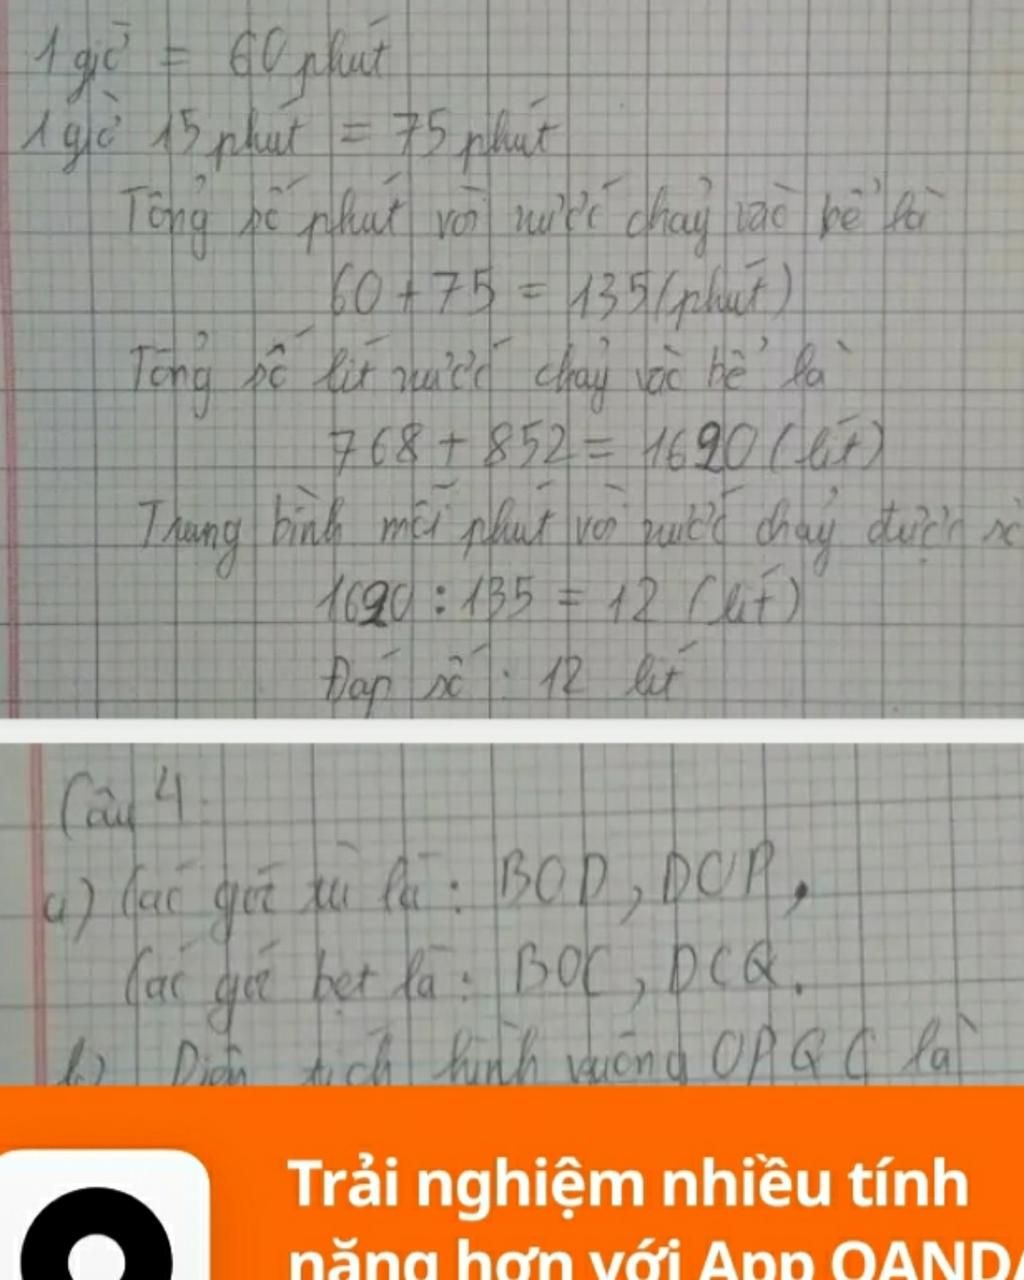 1 giờ = 60 phút
1 giờ 15 phút = 75 phút
Tổng số phút vòi nước chảy vào bể là
60 + 75 = 135 (phút)
Tổng số lít nước chảy vào bể là
768 + 852 = 1620 (lít)
Trung bình mỗi phút vòi nước chảy được số
1620 : 135 = 12 (lít)
Đáp số : 12 lít
Câu 4:
a) Các góc tù là : BOD, DOP,
Các góc bẹt là : BOC, DCQ.
b) Diện tích hình vuông OPQC là
Trải nghiệm nhiều tính
năng hơn với App QANDA